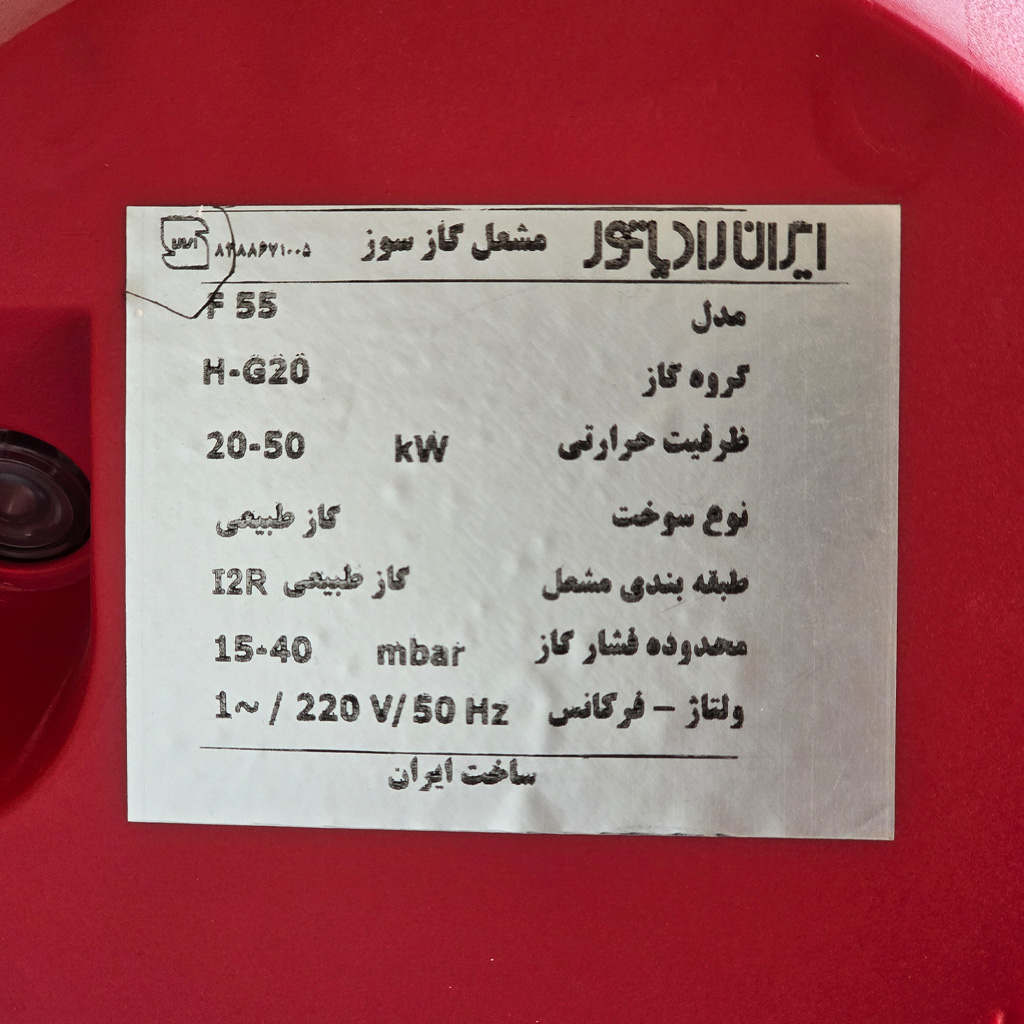 ایران رادیاتور مشعل گاز سوز
مدل F 55
گروه گاز H-G20
ظرفیت حرارتی kW 20-50
نوع سوخت گاز طبیعی
طبقه بندی مشعل گاز طبیعی I2R
محدوده فشار گاز mbar 15-40
ولتاژ – فرکانس 1~ / 220 V/ 50 Hz
ساخت ایران